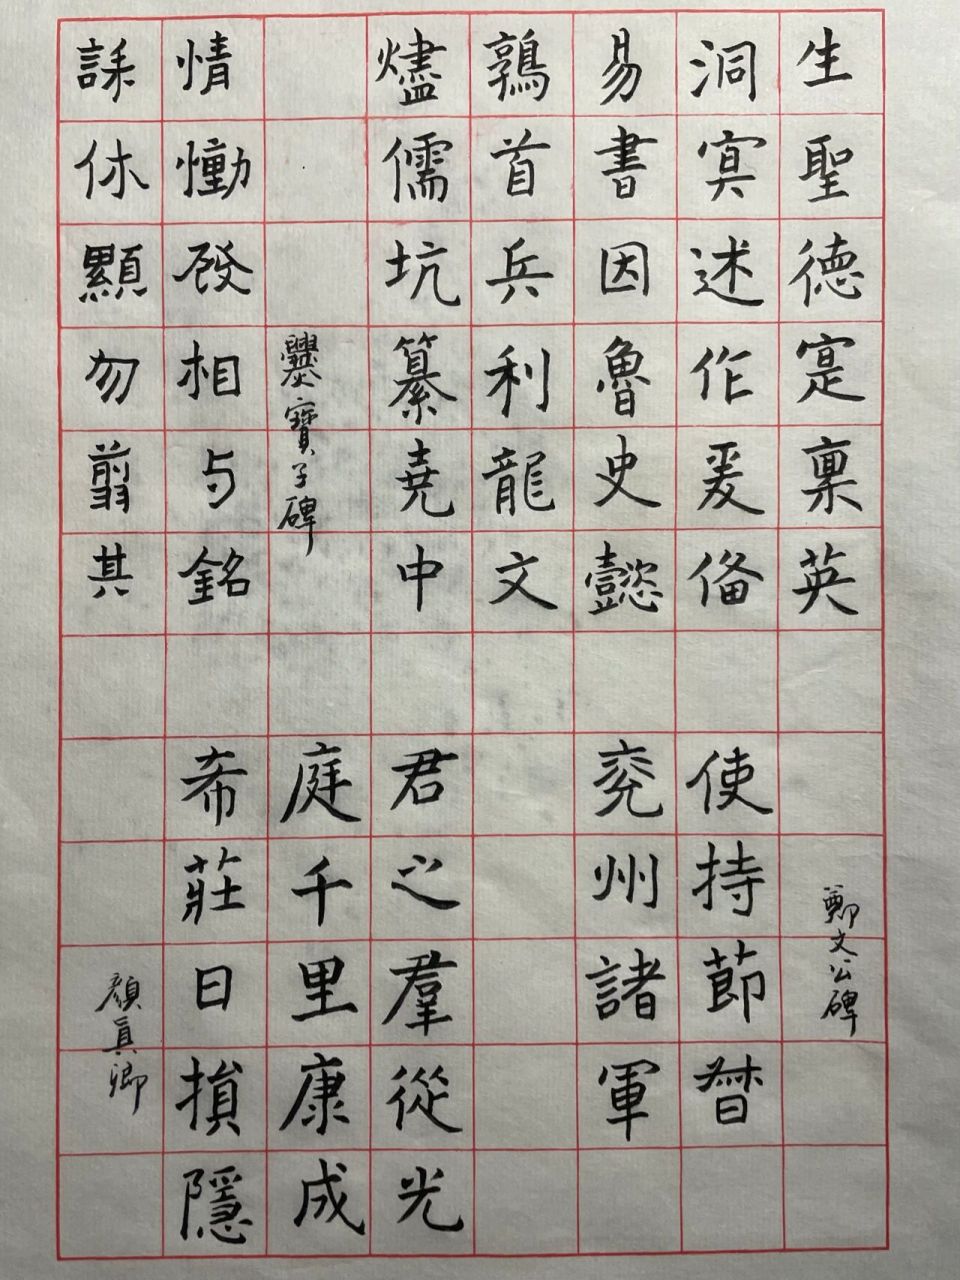 生聖德寔稟英
洞冥述作爰俻
易書因魯史懿
鶉首兵利龍文
燼儒坑纂堯中
爨寶子碑
情慟發相与銘
誄休顯勿翦其
鄭文公碑
使持節督
兖州諸軍
君之羣從光
庭千里康成
希莊日損隱
顏真卿